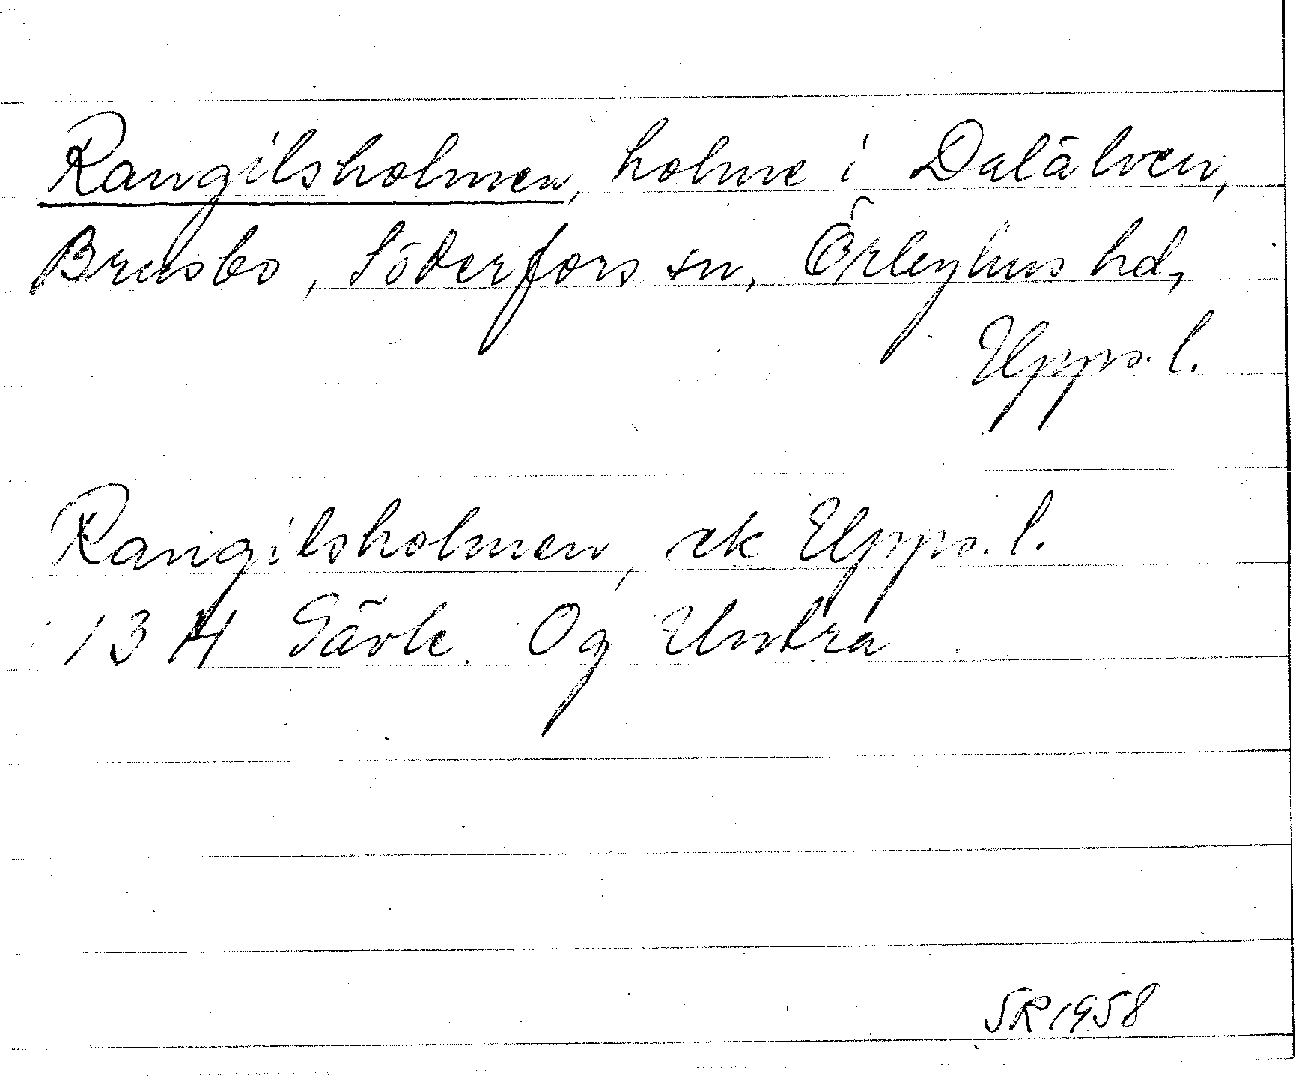 Rangilsholmen, holme i Dalälven,
Brusbo, Söderfors sn, Örbyhus hd,
Upps. l.
Rangilsholmen, ek Upps. l.
134 Gävle. Og Untra
SR 1958